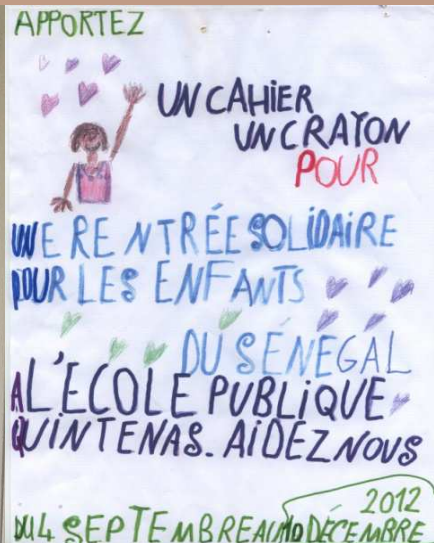 APPORTEZ
UN CAHIER
UN CRAYON
POUR
UNE RENTRÉE SOLIDAIRE
POUR LES ENFANTS
DU SÉNEGAL
A L'ECOLE PUBLIQUE
QUINTENAS. AIDEZ NOUS
2012
DU 4 SEPTEMBRE AU 10 DÉCEMBRE